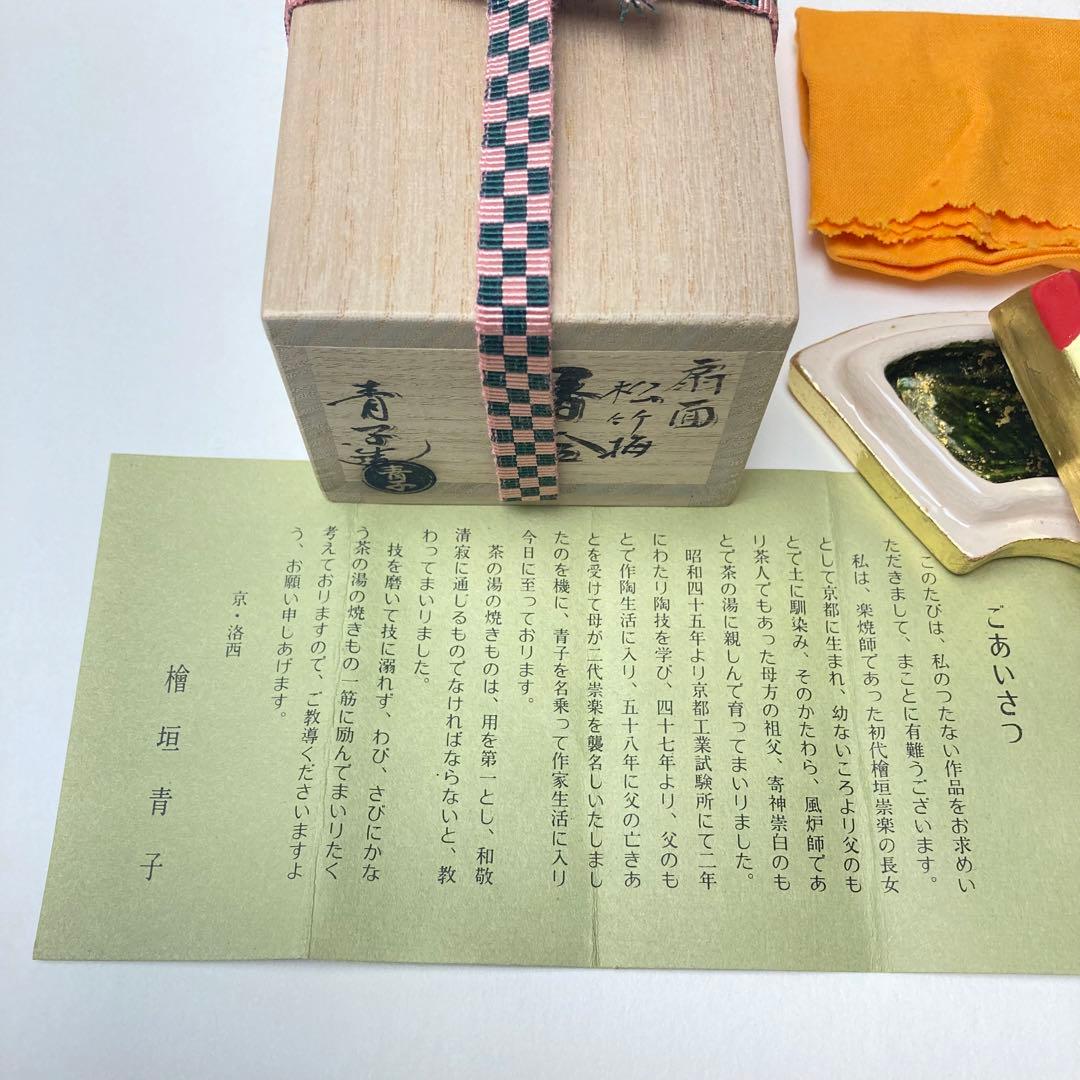 扇面
松竹梅
香合
青子造
青子
ごあいさつ
このたびは、私のつたない作品をお求めい
ただきまして、まことに有難うございます。
私は、楽焼師であった初代檜垣崇楽の長女
として京都に生まれ、幼ないころより父のも
とで土に馴染み、そのかたわら、風炉師であ
り茶人でもあった母方の祖父、寄神崇白のも
とで茶の湯に親しんで育ってまいりました。
昭和四十五年より京都工業試験所にて二年
にわたり陶技を学び、四十七年より、父のも
とで作陶生活に入り、五十八年に父の亡きあ
とを受けて母が二代崇楽を襲名しいたしまし
たのを機に、青子を名乗って作家生活に入り
今日に至っております。
茶の湯の焼きものは、用を第一とし、和敬
清寂に通じるものでなければならないと、教
わってまいりました。
技を磨いて技に溺れず、わび、さびにかな
う茶の湯の焼きもの一筋に励んでまいりたく
考えておりますので、ご教導くださいますよ
う、お願い申しあげます。
京・洛西
檜垣青子